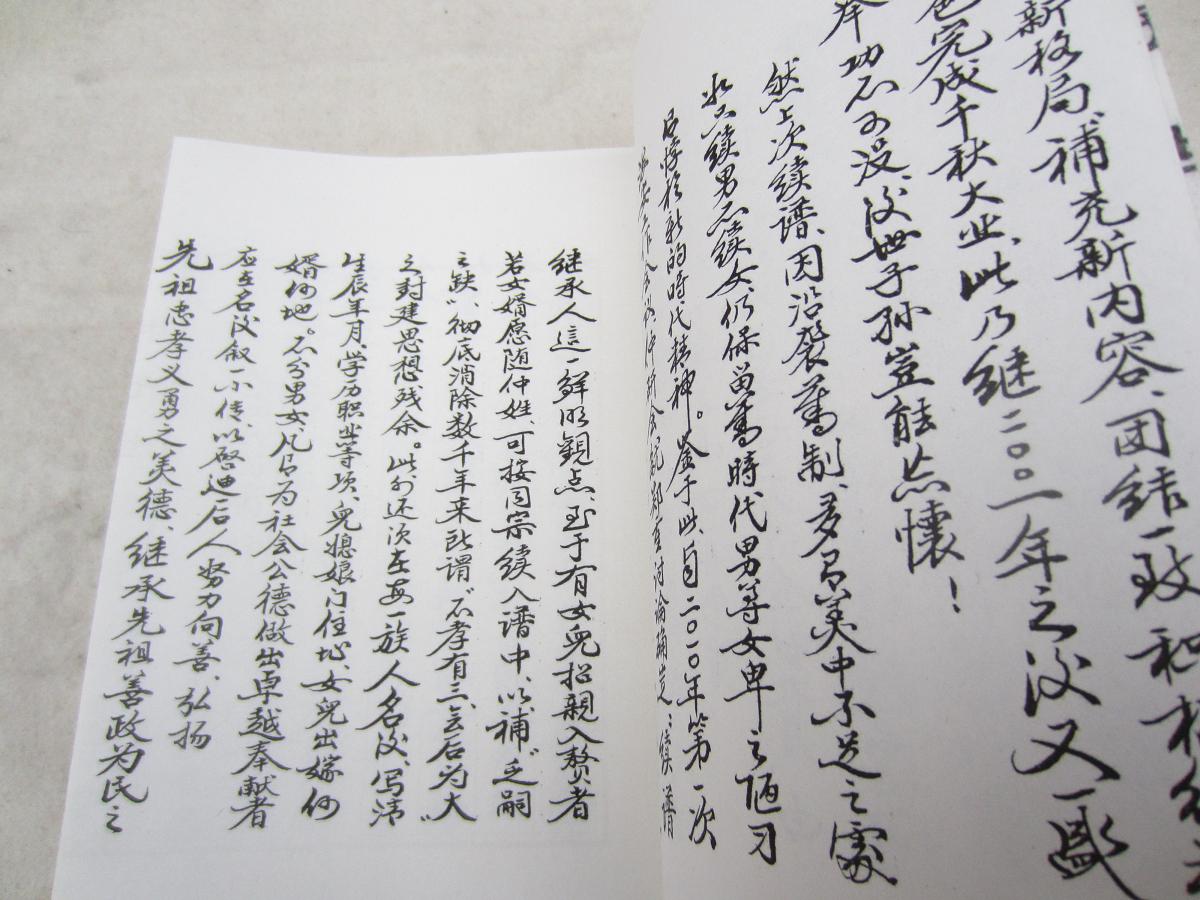 新格局、补充新内容、团结一致和
色完成千秋大业、此乃继二〇〇一年之后又一
举功不可没、后世子孙岂能忘懷！
然上次续谱、因沿袭舊制、多有美中不足之處
只续男不续女、仍保留舊時代男尊女卑之陋习
的時代精神。鉴于此、自二〇一〇年第一次
郑重讨论确定：续谱
继承人這一鲜明觀点、至于有女兒招親入赘者
若女婿愿随仲姓、可按同宗续入谱中、以補“乏嗣
之缺”、彻底消除数千年来所谓“不孝有三、无后为大”
之封建思想残余。此外还须在每一族人名后、写清
生辰年月、学历职业等项、兒媳娘门住址、女兒出嫁何
婿何地。不分男女、凡有为社会公德做出卓越奉献者
应在名后叙一小传、以启迪后人努力向善、弘扬
先祖忠孝义勇之美德、继承先祖善政为民之